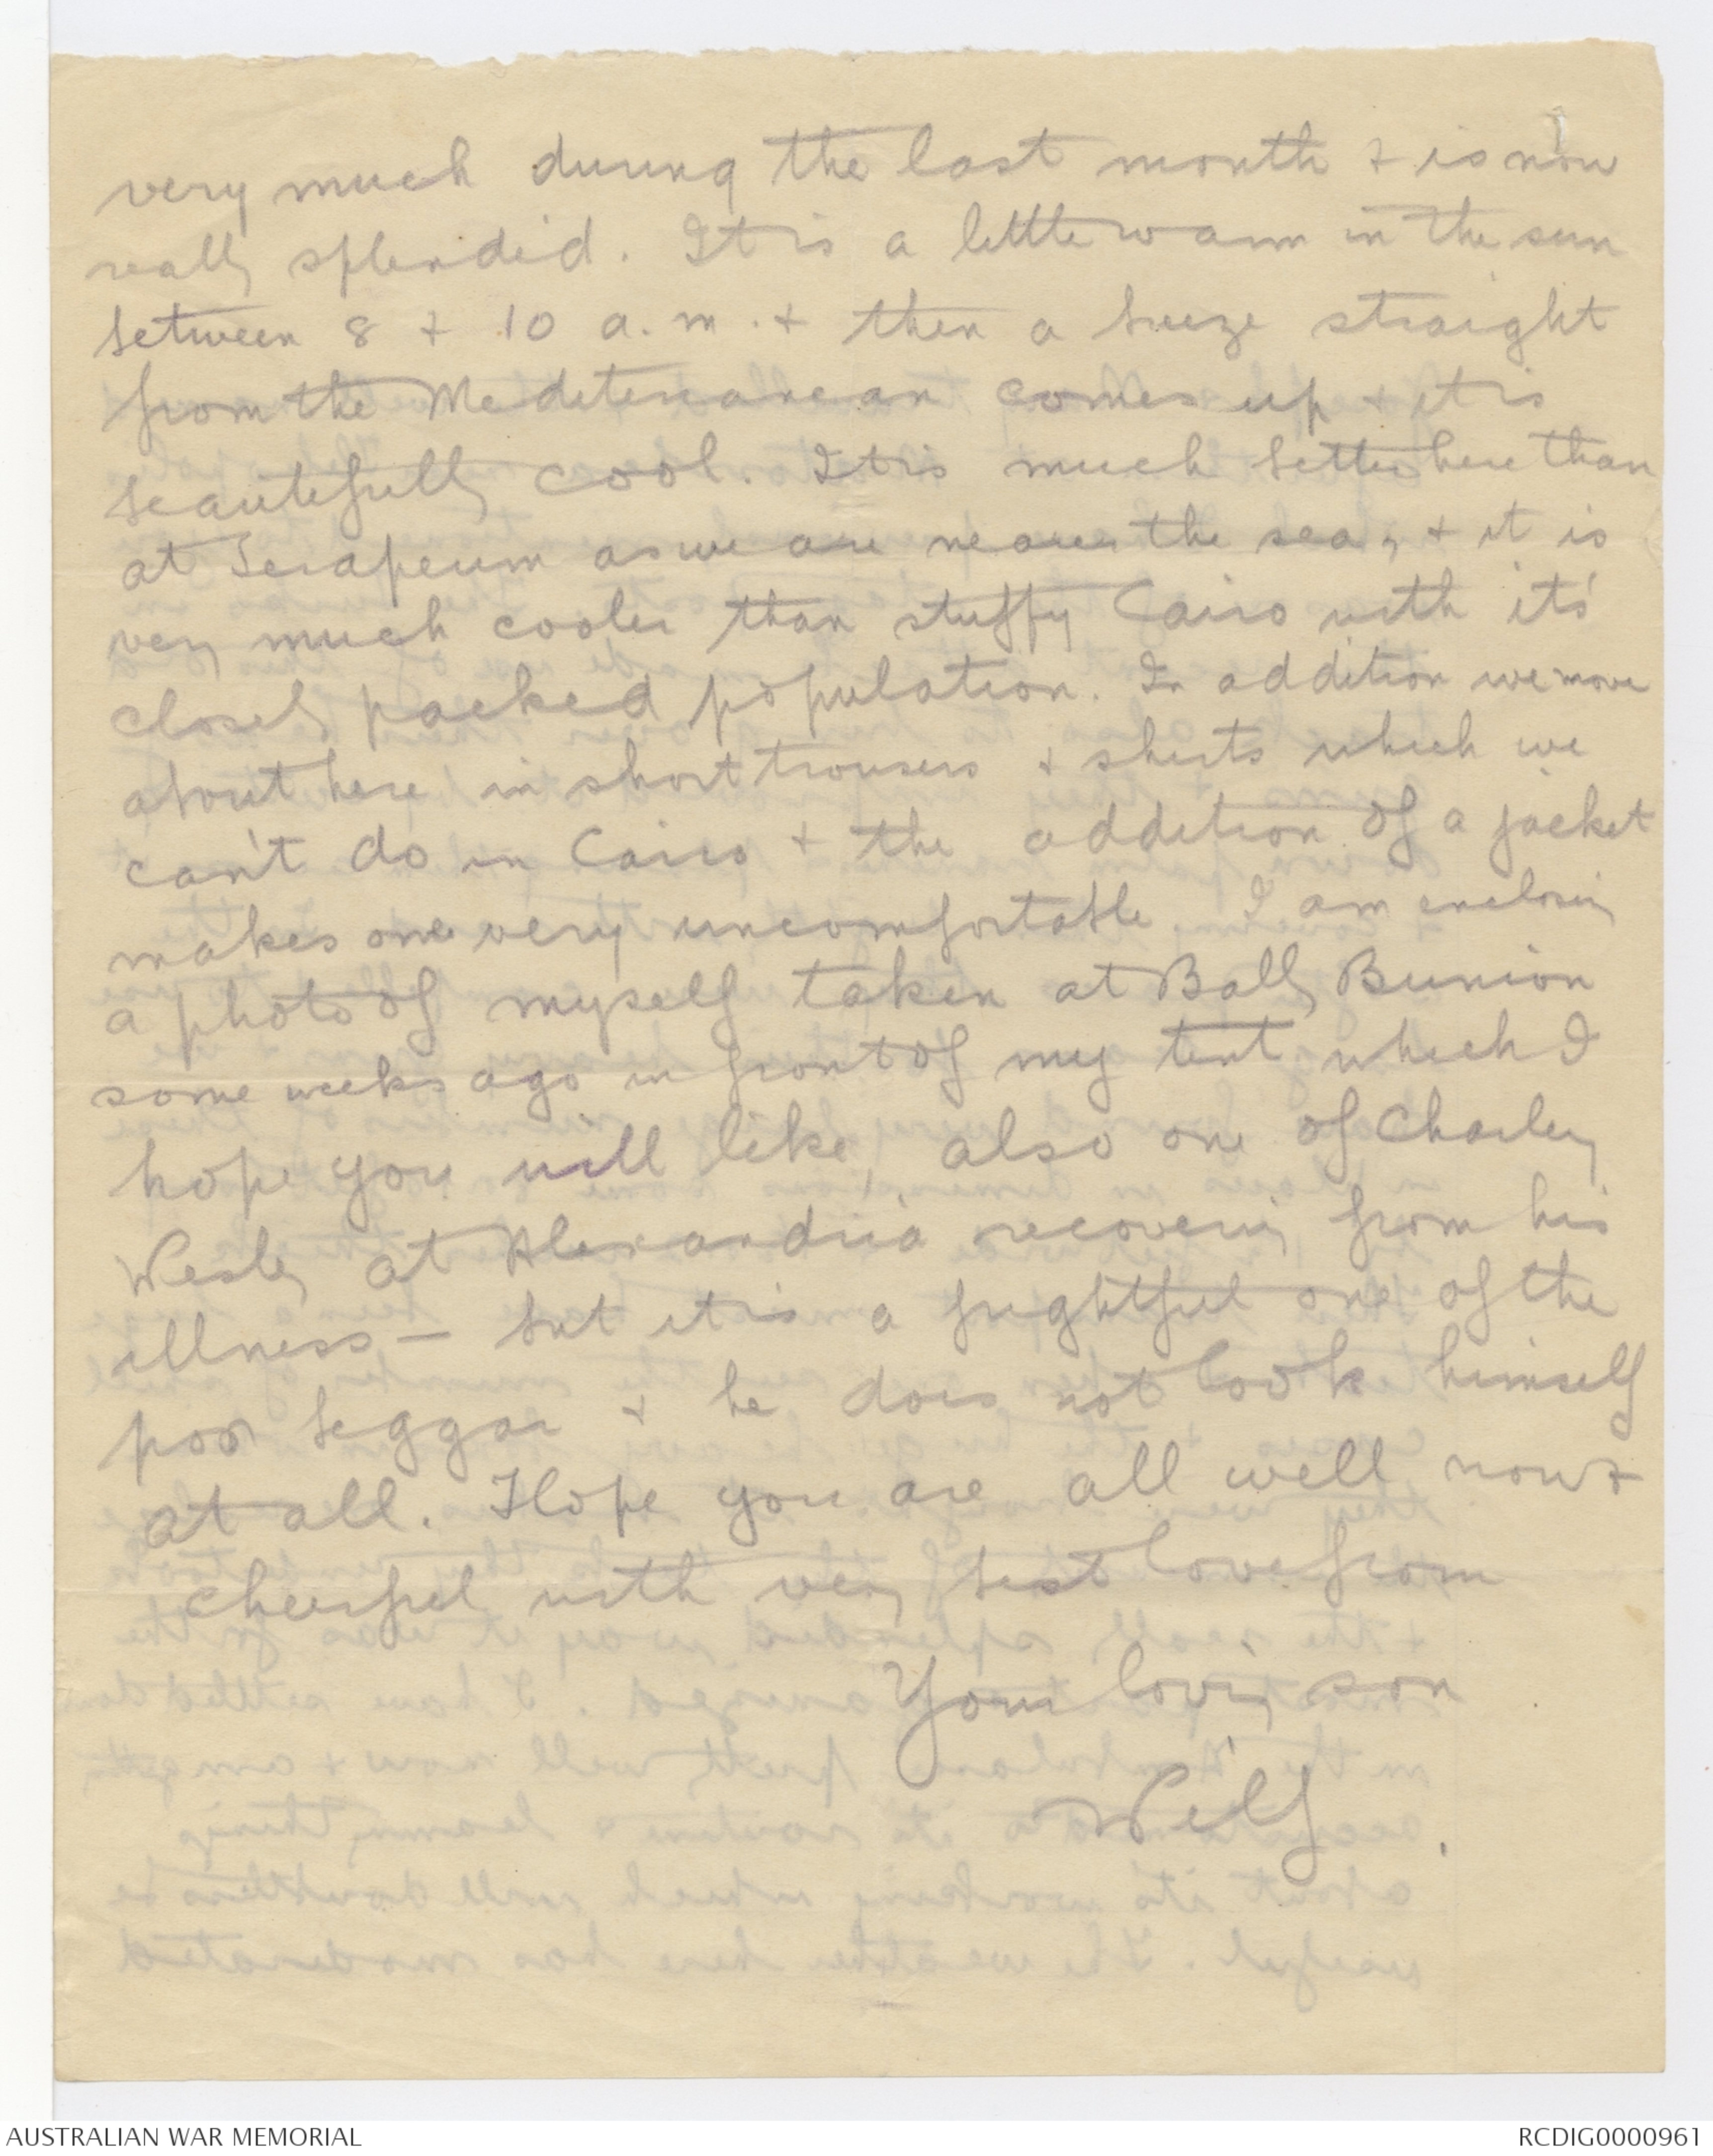 very much during the last month & is now
really splendid. It is a little warm in the sun
between 8 & 10 a.m. & then a breeze straight
from the Mediteranean comes up & it is
beautifully cool. It is much better here than
at Serapeum as we are nearer the sea, & it is
very much cooler than stuffy Cairo with it's
closely packed population. In addition we move
about here in short trousers & shirts which we
can't do in Cairo & the addition of a jacket
makes one very uncomfortable. I am enclosing
a photo of myself taken at Bally Bunion
some weeks ago in front of my tent which I
hope you will like, also one of Charley
Wesley at Alexandria recovering from his
illness — but it is a frightful one of the
poor beggar & he does not look himself
at all. Hope you are all well now &
cheerful with very best love from
Your loving son
Wilf.
AUSTRALIAN WAR MEMORIAL
RCDIG0000961